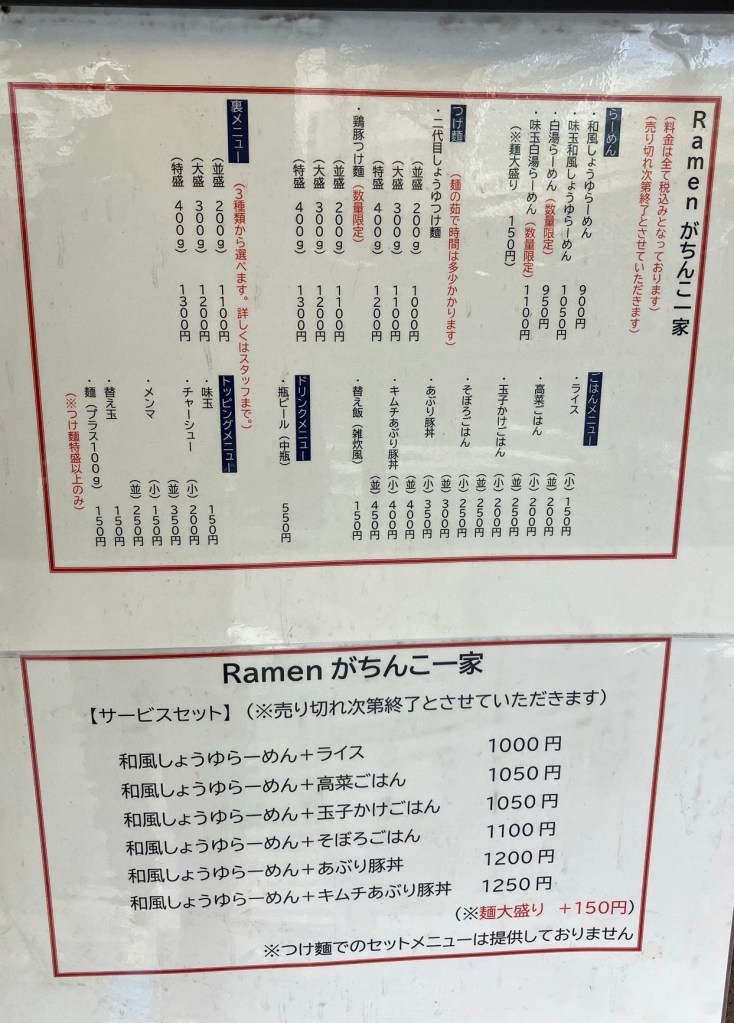 Ramen がちんこ一家
(料金は全て税込みとなっております)
(売り切れ次第終了とさせていただきます)
らーめん
・和風しょうゆらーめん 900円
・味玉和風しょうゆらーめん 1050円
・白湯らーめん(数量限定) 950円
・味玉白湯らーめん(数量限定) 1100円
(※麺大盛り 150円)
つけ麺 (麺の茹で時間は多少かかります)
・二代目しょうゆつけ麺
(並盛 200g) 1000円
(大盛 300g) 1100円
(特盛 400g) 1200円
・鶏豚つけ麺(数量限定)
(並盛 200g) 1100円
(大盛 300g) 1200円
(特盛 400g) 1300円
裏メニュー (3種類から選べます。詳しくはスタッフまで。)
(並盛 200g) 1100円
(大盛 300g) 1200円
(特盛 400g) 1300円
ごはんメニュー
・ライス (小) 150円
(並) 200円
・高菜ごはん (小) 200円
(並) 250円
・玉子かけごはん (小) 200円
(並) 250円
・そぼろごはん (小) 250円
(並) 300円
・あぶり豚丼 (小) 350円
(並) 400円
・キムチあぶり豚丼 (小) 400円
(並) 450円
・替え飯(雑炊風) 150円
ドリンクメニュー
・瓶ビール(中瓶) 550円
トッピングメニュー
・味玉 150円
・チャーシュー (小) 200円
(並) 350円
・メンマ (小) 150円
(並) 250円
・替え玉 150円
・麺(プラス100g) 150円
(※つけ麺特盛以上のみ)
Ramen がちんこ一家
【サービスセット】(※売り切れ次第終了とさせていただきます)
和風しょうゆらーめん+ライス 1000円
和風しょうゆらーめん+高菜ごはん 1050円
和風しょうゆらーめん+玉子かけごはん 1050円
和風しょうゆらーめん+そぼろごはん 1100円
和風しょうゆらーめん+あぶり豚丼 1200円
和風しょうゆらーめん+キムチあぶり豚丼 1250円
(※麺大盛り +150円)
※つけ麺でのセットメニューは提供しておりません